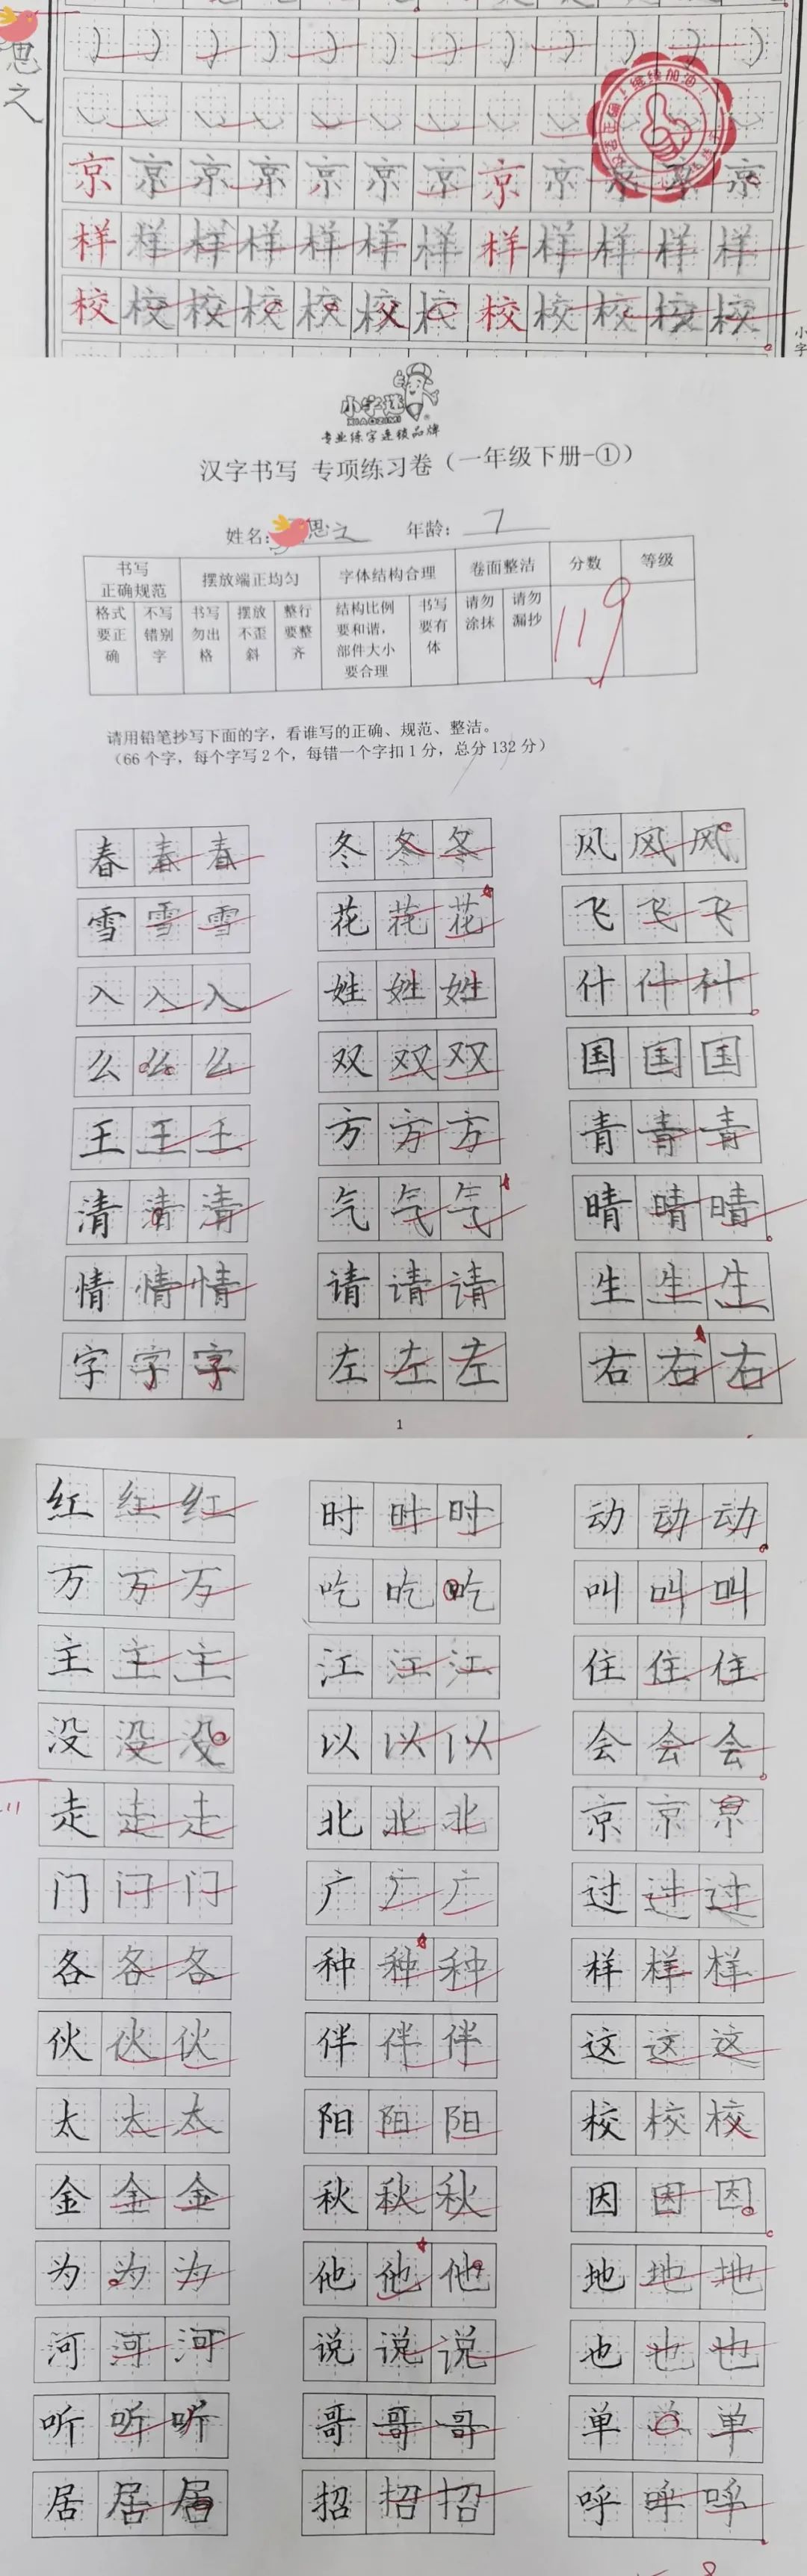 思之
继续加油!
京京京京京京京京京京京京
样样样样样样样样样样样样
校校校校校校校校校校校校
小字
小字迷
XIAOZIMI
专业练字连锁品牌
汉字书写 专项练习卷(一年级下册-①)
姓名: 思之 年龄: 7
书写正确规范 摆放端正均匀 字体结构合理 卷面整洁 分数 等级
格式要正确 不写错别字 书写勿出格 摆放不歪斜 整行要整齐 结构比例要和谐,部件大小要合理 书写要有体 请勿涂抹 请勿漏抄 119
请用铅笔抄写下面的字,看谁写的正确、规范、整洁。
(66个字,每个字写2个,每错一个字扣1分,总分132分)
春春春 冬冬冬 风风风
雪雪雪 花花花 飞飞飞
入入入 姓姓姓 什什什
么么么 双双双 国国国
王王王 方方方 青青青
清清清 气气气 晴晴晴
情情情 请请请 生生生
字字字 左左左 右右右
1
红红红 时时时 动动动
万万万 吃吃吃 叫叫叫
主主主 江江江 住住住
没没没 以以以 会会会
走走走 北北北 京京京
门门门 广广广 过过过
各各各 种种种 样样样
伙伙伙 伴伴伴 这这这
太太太 阳阳阳 校校校
金金金 秋秋秋 因因因
为为为 他他他 地地地
河河河 说说说 也也也
听听听 哥哥哥 单单单
居居居 招招招 呼呼呼